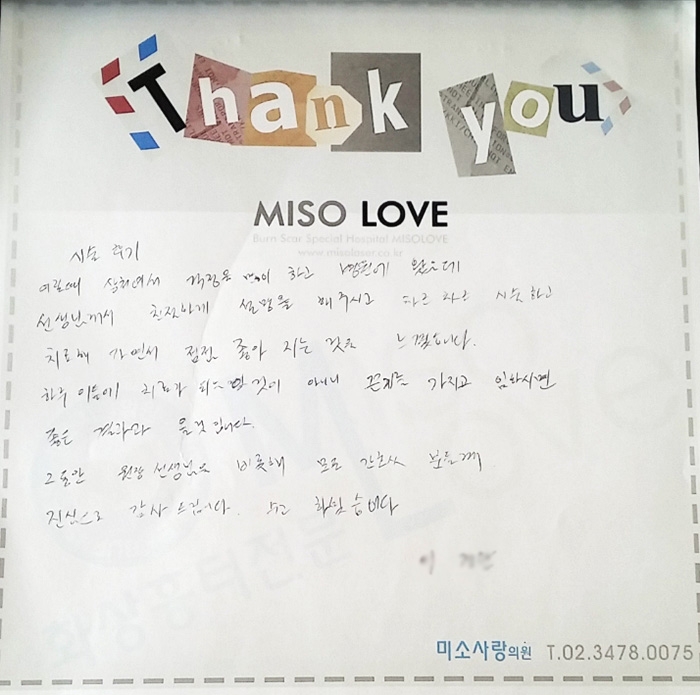 Thank you
MISO LOVE
Burn Scar Special Hospital MISOLOVE
www.misolaser.co.kr
시술 후기
어릴때 상처에서 걱정을 많이 하고 병원에 왔는데
선생님께서 친절하게 설명을 해 주시고 차근 차근 시술 하고
치료해 가면서 점점 좋아 지는 것을 느꼈습니다.
하루 이틀에 치료가 되는 것이 아니니 끈기를 가지고 임하시면
좋은 결과가 올것 입니다.
그동안 원장 선생님을 비롯해 모든 간호사 분들께
진심으로 감사 드립니다. 수고 하셨습니다
화상흉터전문
미소사랑의원 T.02.3478.0075